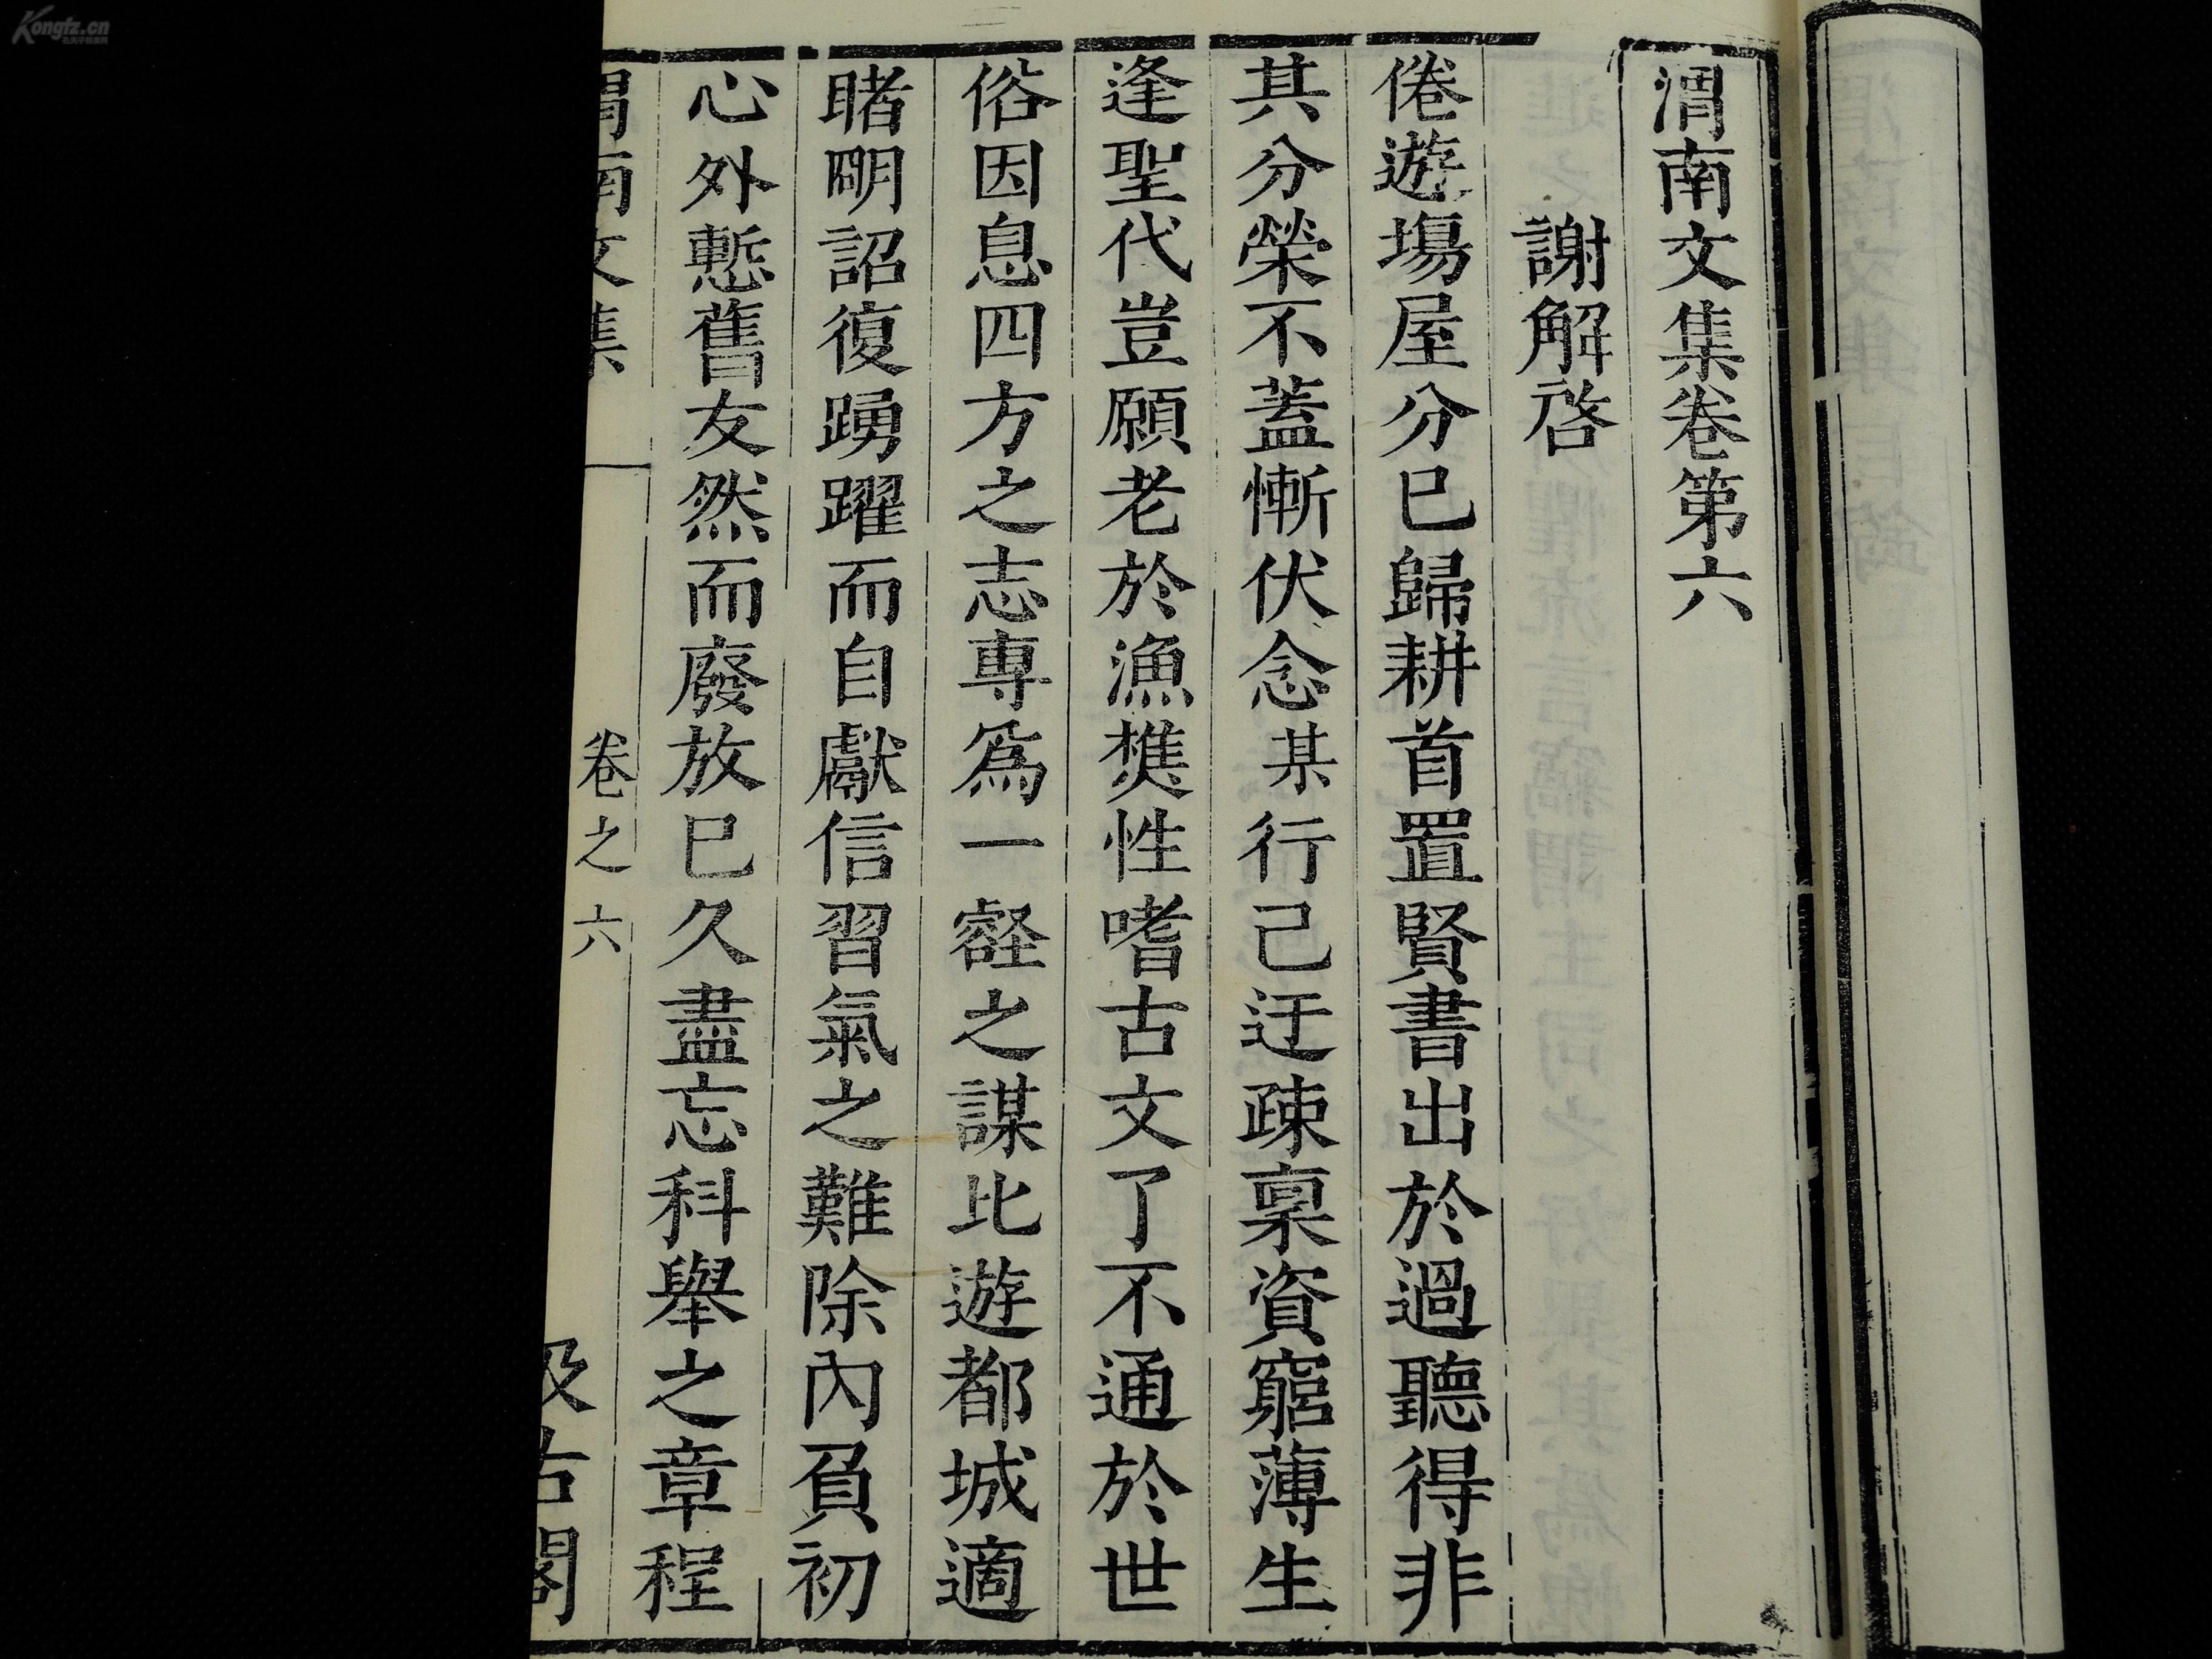 渭南文集卷第六
謝解啓
倦遊場屋分已歸耕首置賢書出於過聽得非
其分榮不蓋慚伏念某行己迂疎稟資窮薄生
逢聖代豈願老於漁樵性嗜古文了不通於世
俗因息四方之志專爲一壑之謀比遊都城適
睹明詔復踴躍而自獻信習氣之難除內負初
心外慙舊友然而廢放已久盡忘科舉之章程
渭南文集 卷之六 汲古閣
Kongfz.cn